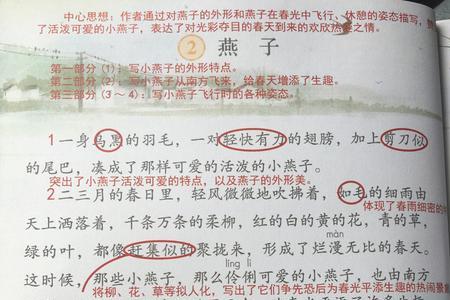 中心思想：作者通过对燕子的外形和燕子在春光中飞行、休憩的姿态描写，
了活泼可爱的小燕子，表达了对光彩夺目的春天到来的欣欣热爱之情。
2 燕子
第一部分（1）：写小燕子的外形特点。
第二部分（2）：写小燕子从南方飞来，给春天增添了生趣。
第三部分（3～4）：写小燕子飞行时的各种姿态。
1一身乌黑的羽毛，一对轻快有力的翅膀，加上剪刀似
的尾巴，凑成了那样可爱的活泼的小燕子。
突出了小燕子活泼可爱的特点，以及燕子的外形美。
2二三月的春日里，轻风微微地吹拂着，如毛的细雨由
体现了春雨细密的
天上洒落着，千条万条的柔柳，红的白的黄的花，青的草，
绿的叶，都像赶集似的聚拢来，形成了烂漫无比的春天。
màn
líng lì
这时候，那些小燕子，那么伶俐可爱的小燕子，也由南方
将柳、花、草等拟人化，写出了它们争先恐后为春光平添生趣的热闹景象